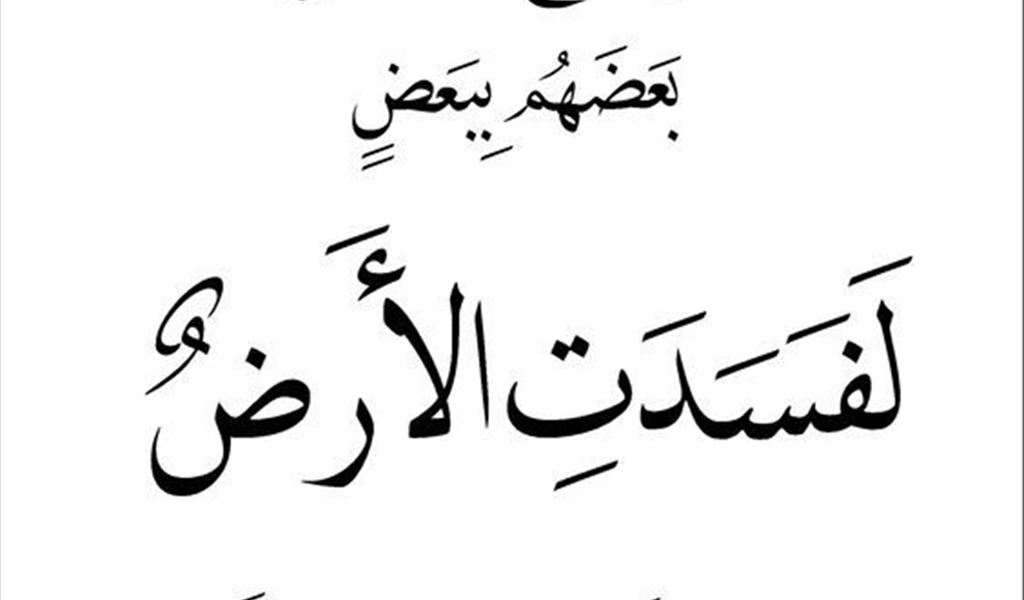 بَعضَهُم بِبَعضٍ
لَفَسَدَتِ الأَرضُ